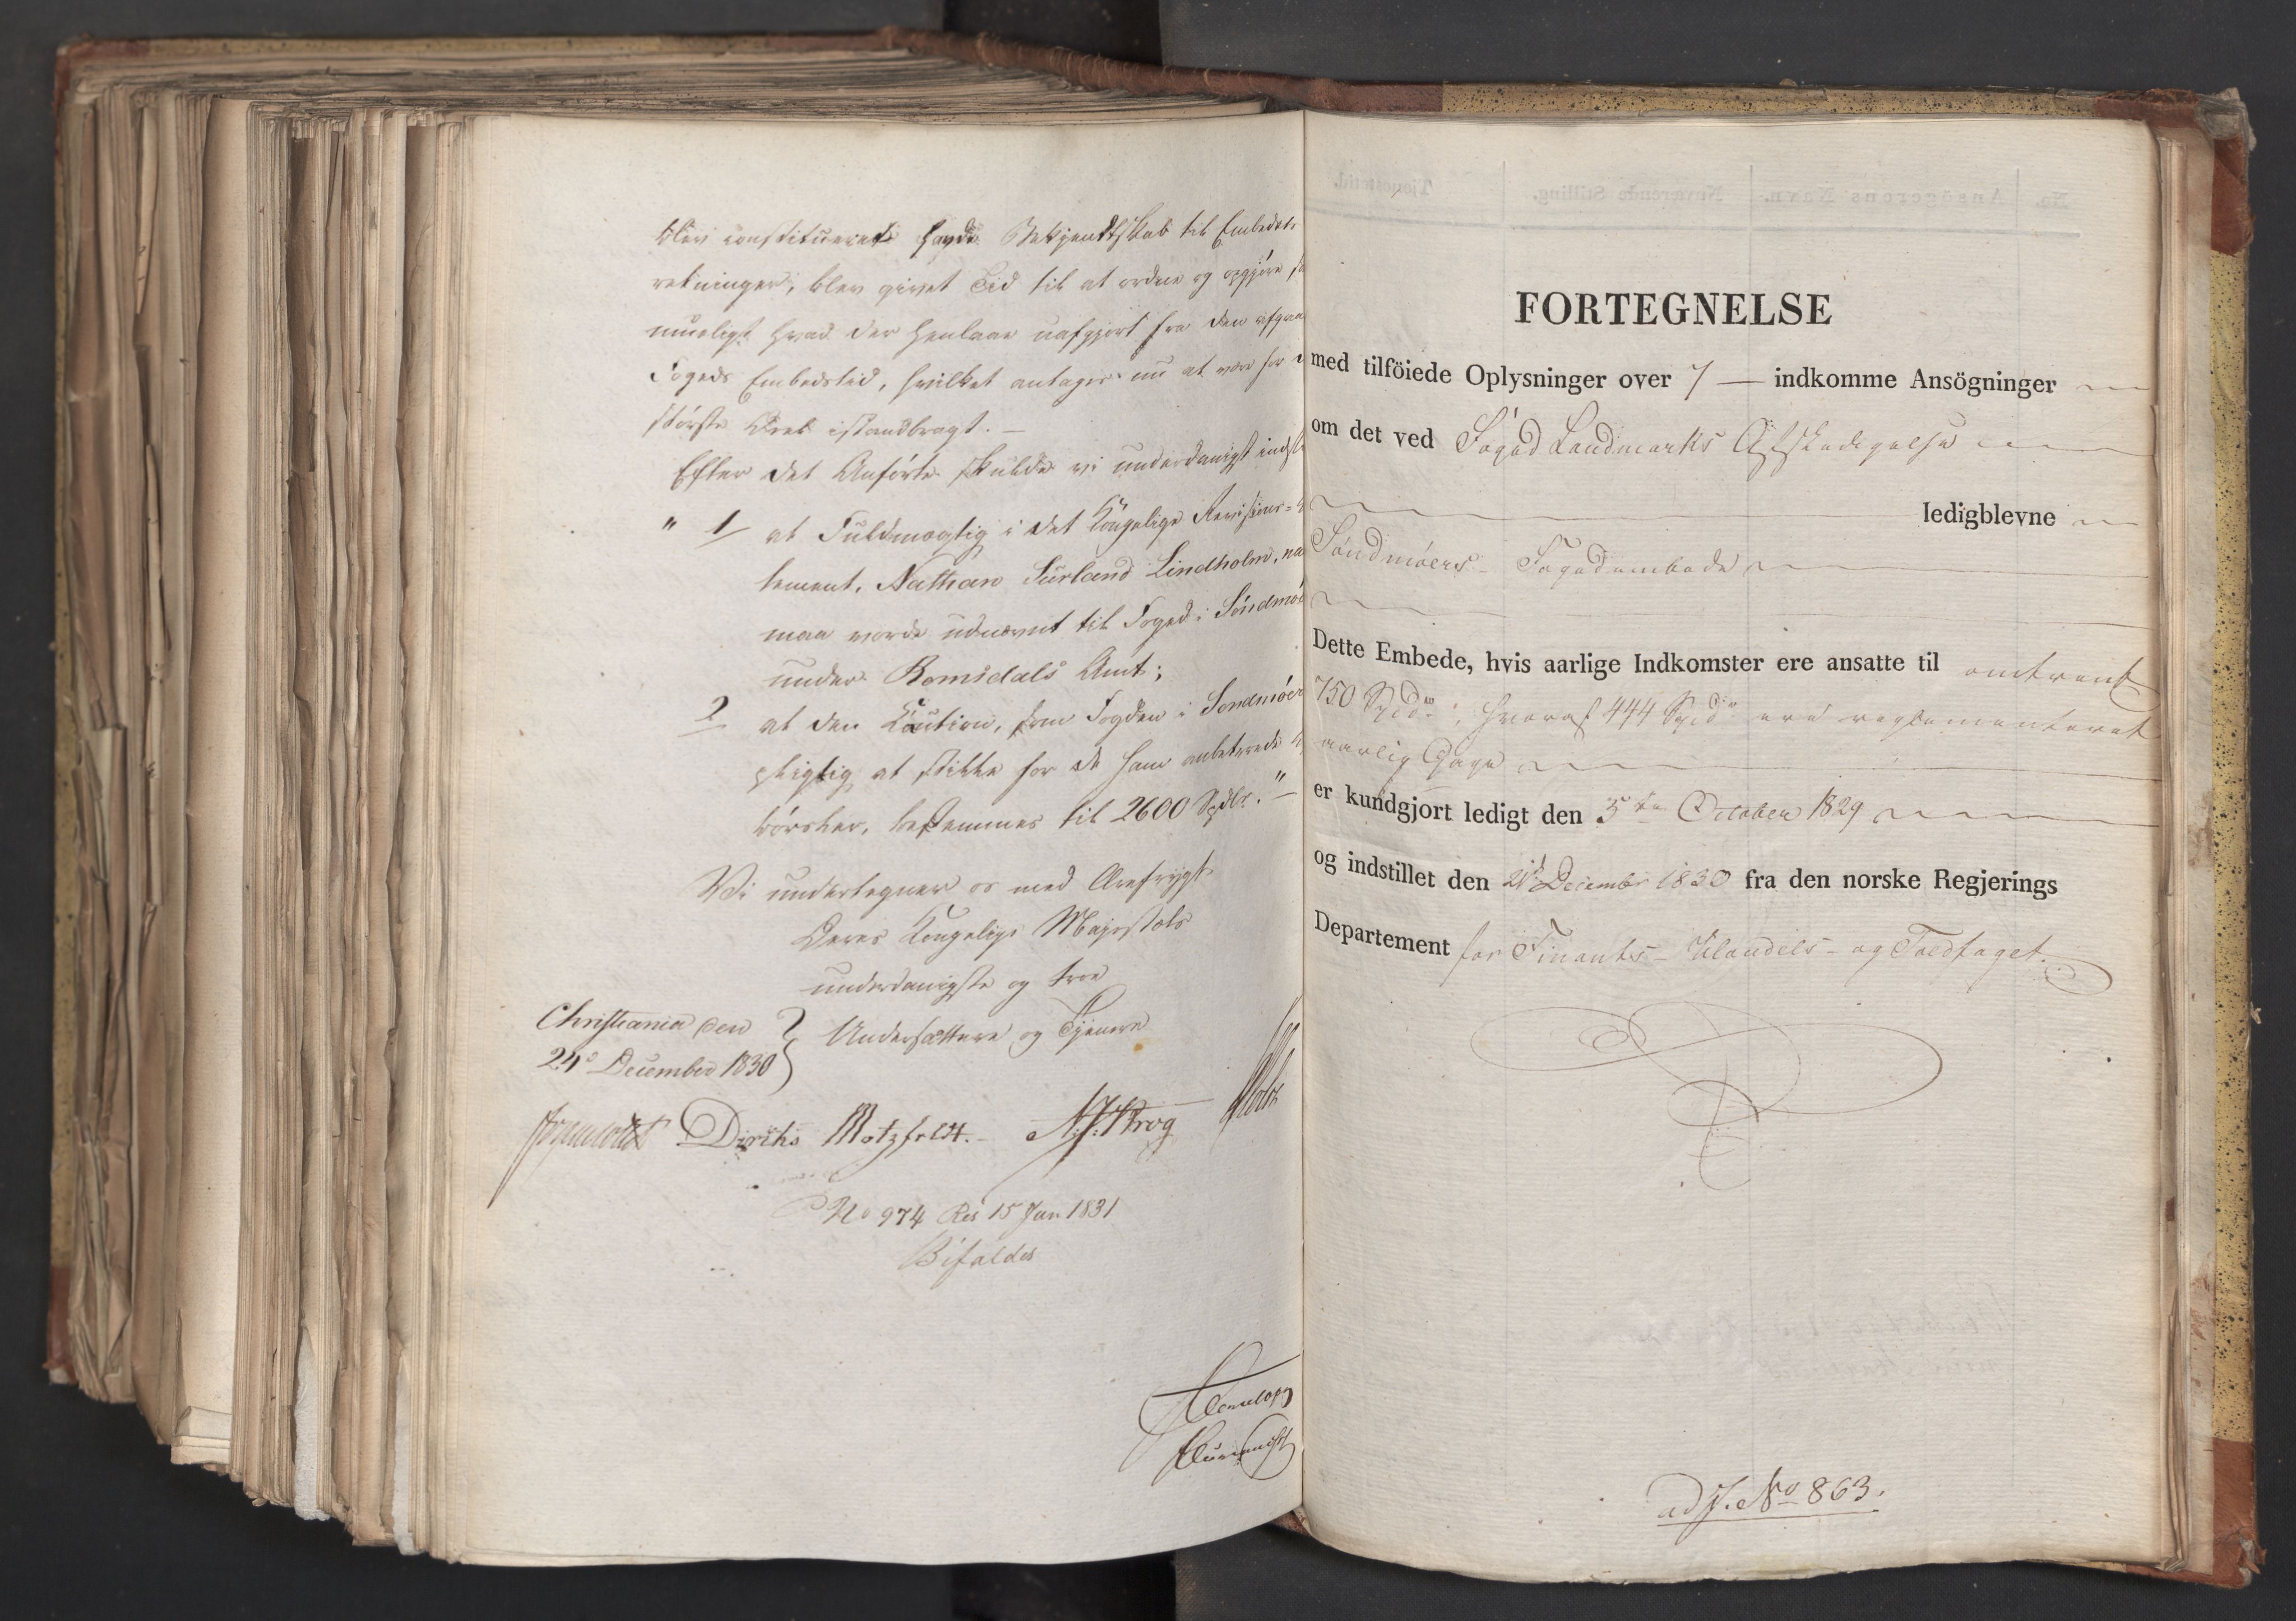 blev constitueret havde Bekjendtskab til Embedets
retninger, blev givet Tid til at ordne og opgjøre
mueligt hvad der henlaae uafgjort fra den afgaa
Fogeds Embedstid, hvilket antages nu at være for
største Deel istandbragt. —
Efter det Anførte skulde vi underdanigst indst
" 1 at Fuldmægtig i det Kongelige Revisions-
tement, Nathan Furland Lindholm, na
maa vorde udnævnt til Foged i Söndmör
under Romsdals Amt;
2 at den Caution, som Fogden i Söndmöer
pligtig at stille for de ham anbetroede
börsler, bestemmes til 2600 Spdlr." —
Vi undertegner os med Ærefrygt
Deres Kongelige Majestæts
underdanigste og troe
Christiania den
Undersaattere og Tjenere
24de December 1830
Diriks Motzfeldt. N.J. Krog Holst
No 974 Res 15 Jan 1831
Bifaldes
No. Ansögerens Navn. Nuværende Stilling. Tjenestetid.
FORTEGNELSE
med tilföiede Oplysninger over 7 — indkomme Ansögninger
om det ved Foged Landmarks Afskedigelse
ledigblevne
Söndmöers Fogedembede
Dette Embede, hvis aarlige Indkomster ere ansatte til omtrent
750 Spd., hvoraf 444 Spd. ere reglementeret
aarlig Gage
er kundgjort ledigt den 5te October 1829
og indstillet den 21de December 1830 fra den norske Regjerings
Departement for Finants- Handels- og Toldfaget.
ad J. No 863.